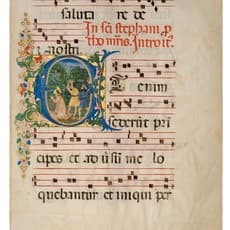 saluta re de
In sci stephani, p
tho mris. Introit.
nostri
enim
sederūt prī
cipes et adusūm me lo
quebantur et iniqui per